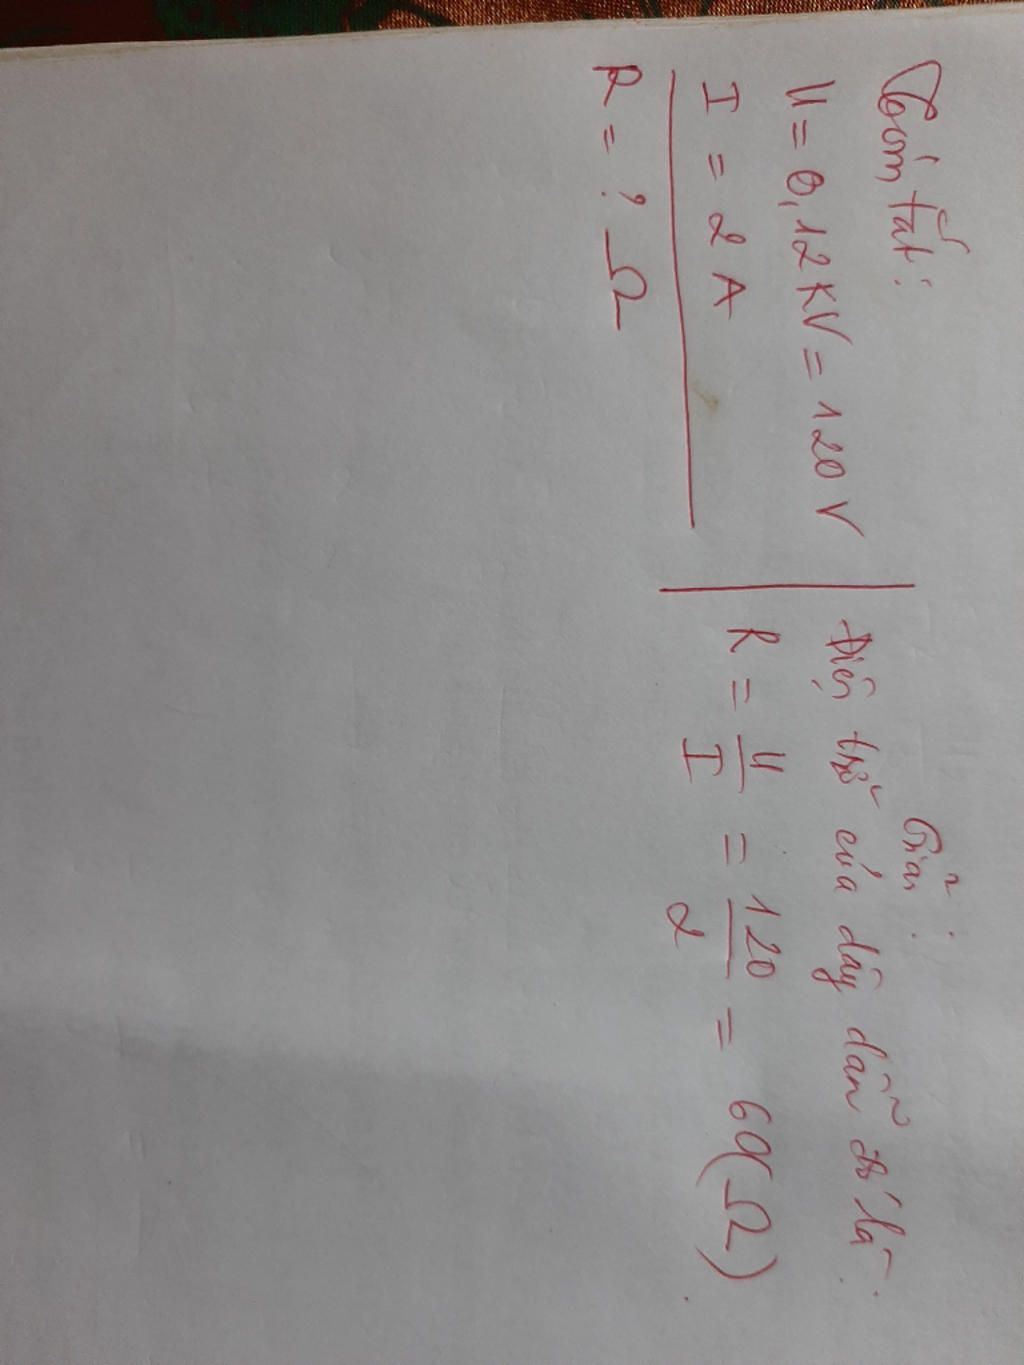 Tóm tắt:
U = 0,12KV = 120V
I = 2A
R = ? Ω
Giải:
Điện trở của dây dẫn đó là
R = U/I = 120/2 = 60(Ω)